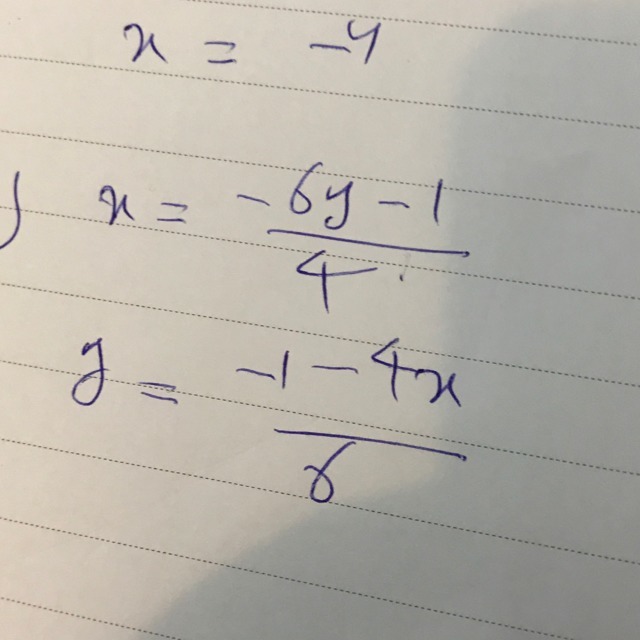 x = -4
) x = \frac{-6y - 1}{4}
y = \frac{-1 - 4x}{6}